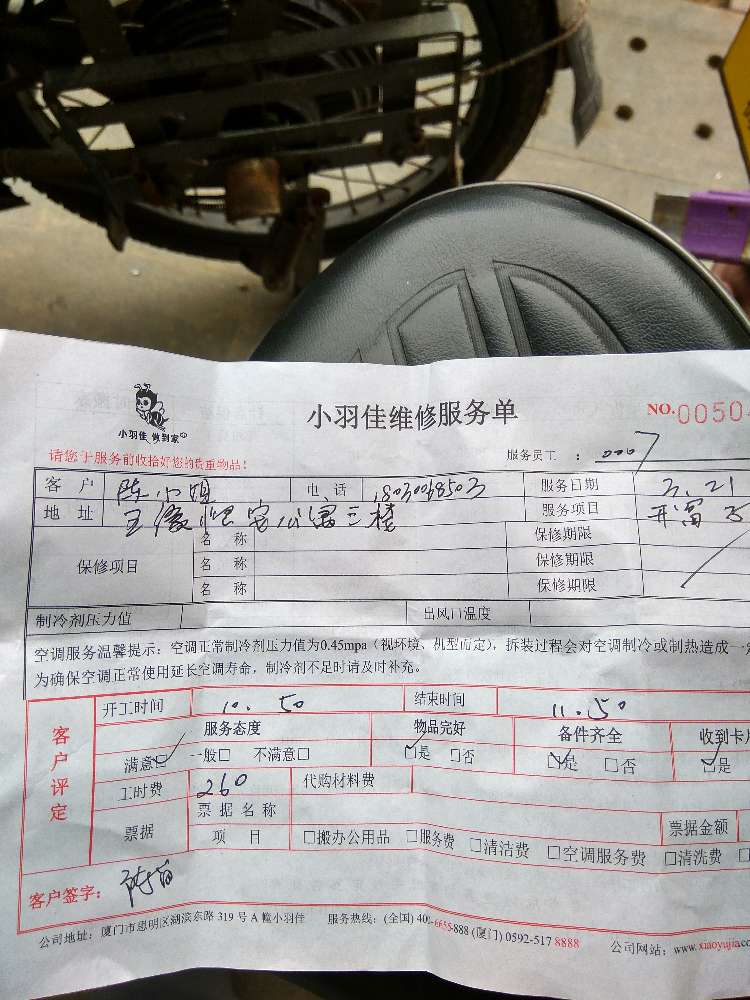 小羽佳维修服务单
NO.0050
小羽佳 做到家
请您于服务前收拾好您的贵重物品!
服务员工 : 0007
客 户 陈小姐 电 话 18030068503 服务日期 3.21
地 址 服务项目
保修项目
名 称 保修期限
名 称 保修期限
名 称 保修期限
制冷剂压力值 出风口温度
空调服务温馨提示: 空调正常制冷剂压力值为0.45mpa (视环境、机型而定), 拆装过程会对空调制冷或制热造成一定
为确保空调正常使用延长空调寿命, 制冷剂不足时请及时补充。
客户评定
开工时间 10.50 结束时间 11.50
服务态度 物品完好 备件齐全 收到卡片
满意☑ 一般□ 不满意□ ☑是 □否 ☑是 □否 ☑是
工时费 260 代购材料费
票据 票据名称 票据金额
项 目 □搬办公用品 □服务费 □清洁费 □空调服务费 □清洗费
客户签字:
公司地址: 厦门市思明区湖滨东路 319 号 A 幢小羽佳 服务热线: (全国) 400-6655-888 (厦门) 0592-517 8888 公司网站: www.xiaoyujia.co